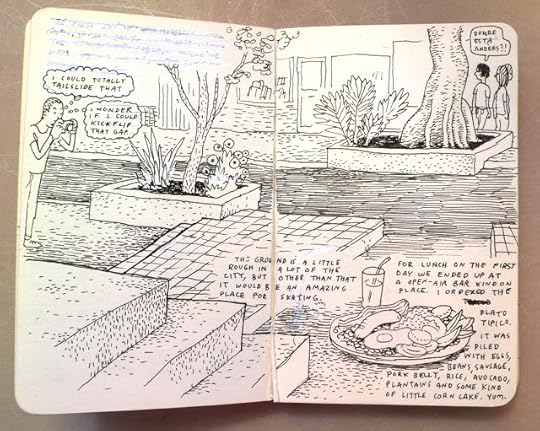 I COULD TOTALLY
TAILSLIDE THAT
I WONDER
IF I COULD
KICKFLIP
THAT GAP
THE GROUND IS A LITTLE
ROUGH IN A LOT OF THE
CITY, BUT OTHER THAN THAT
IT WOULD BE AN AMAZING
PLACE FOR SKATING.
DONDE
ESTA
ANDERS?!
FOR LUNCH ON THE FIRST
DAY WE ENDED UP AT
A OPEN-AIR BAR KIND OF
PLACE. I ORDERED THE
PLATO
TIPICO.
IT WAS
PILED
WITH EGGS,
BEANS, SAUSAGE,
PORK BELLY, RICE, AVOCADO,
PLANTAINS AND SOME KIND
OF LITTLE CORN CAKE. YUM.